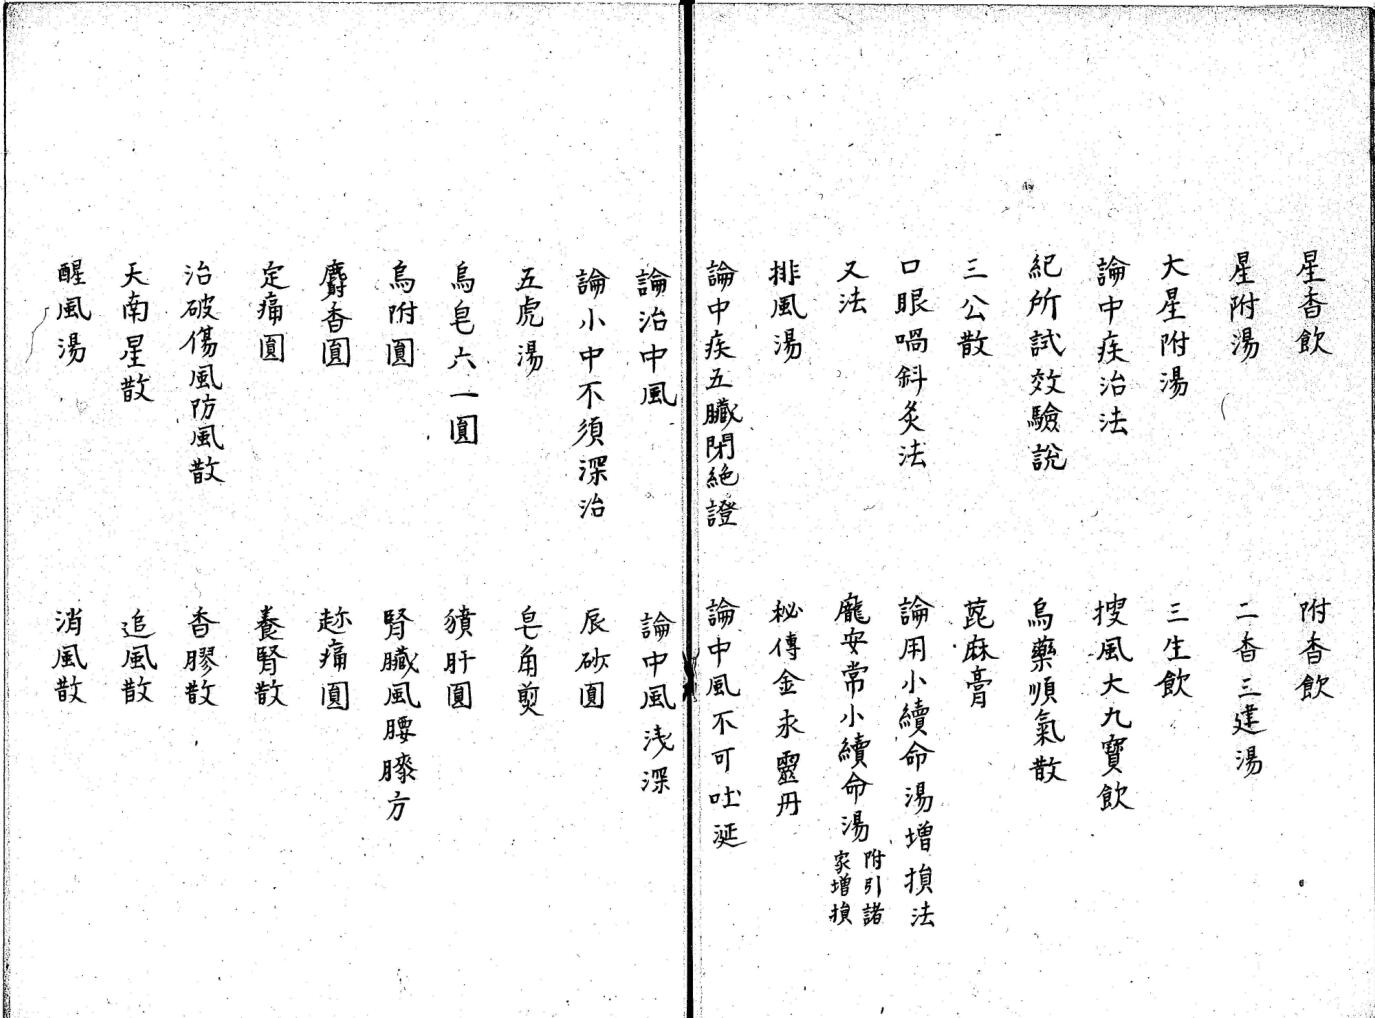 星香飲　附香飲
星附湯　二香三建湯
大星附湯　三生飲
論中疾治法　搜風大九寶飲
紀所試效驗說　烏藥順氣散
三公散　萞麻膏
口眼喎斜灸法　論用小續命湯增損法
又法　龐安常小續命湯附引諸家增損
排風湯　秘傳金永靈丹
論中疾五臟閉絕證　論中風不可吐涎
論治中風　論中風浅深
論小中不須深治　辰砂圓
五虎湯　皂角煎
烏皂六一圓　豶肝圓
烏附圓　腎臟風腰膝方
麝香圓　趂痛圓
定痛圓　養腎散
治破傷風防風散　香膠散
天南星散　追風散
醒風湯　消風散